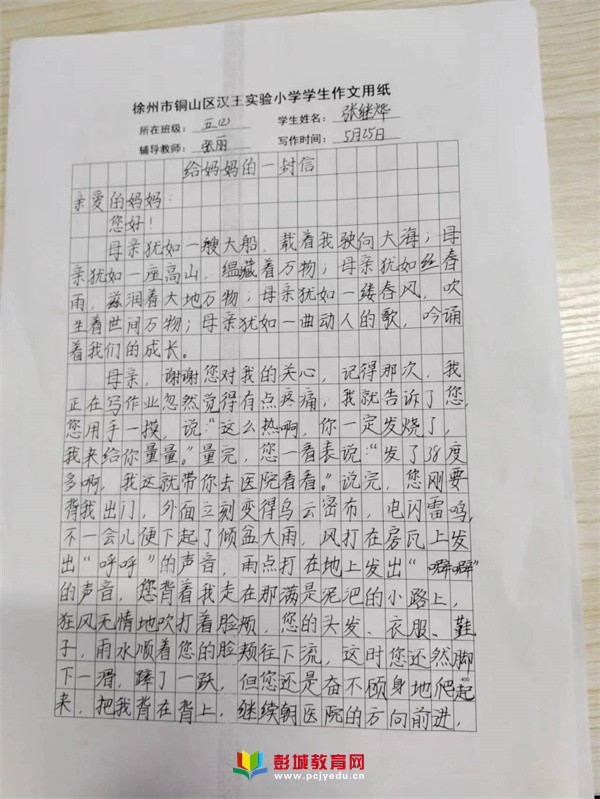 徐州市铜山区汉王实验小学学生作文用纸
所在班级：五(2) 学生姓名：张继烨
辅导教师：张丽 写作时间：5月25日
给妈妈的一封信
亲爱的妈妈：
您好！
母亲犹如一艘大船，载着我驶向大海；母
亲犹如一座高山，缊藏着万物；母亲犹如丝春
雨，滋润着大地万物；母亲犹如一缕春风，吹
生着世间万物；母亲犹如一曲动人的歌，吟诵
着我们的成长。
母亲，谢谢您对我的关心，记得那次，我
正在写作业忽然觉得有点疼痛，我就告诉了您，
您用手一摸，说：“这么热啊，你一定发烧了，
我来给你量量。”量完，您一看表说：“发了38度
多啊，我这就带你去医院看看。”说完，您刚要
背我出门，外面立刻变得乌云密布，电闪雷鸣，
不一会儿便下起了倾盆大雨，风打在房瓦上发
出“呼呼”的声音，雨点打在地上发出“噼噼”
的声音，您背着我走在那满是泥泥的小路上，
狂风无情地吹打着脸颊，您的头发、衣服、鞋
子，雨水顺着您的脸颊往下流，这时您还然脚
下一滑，摔了一跃，但您还是奋不顾身地爬起
400
来，把我背在背上，继续朝医院的方向前进，
彭城教育网
www.pcjyedu.cn